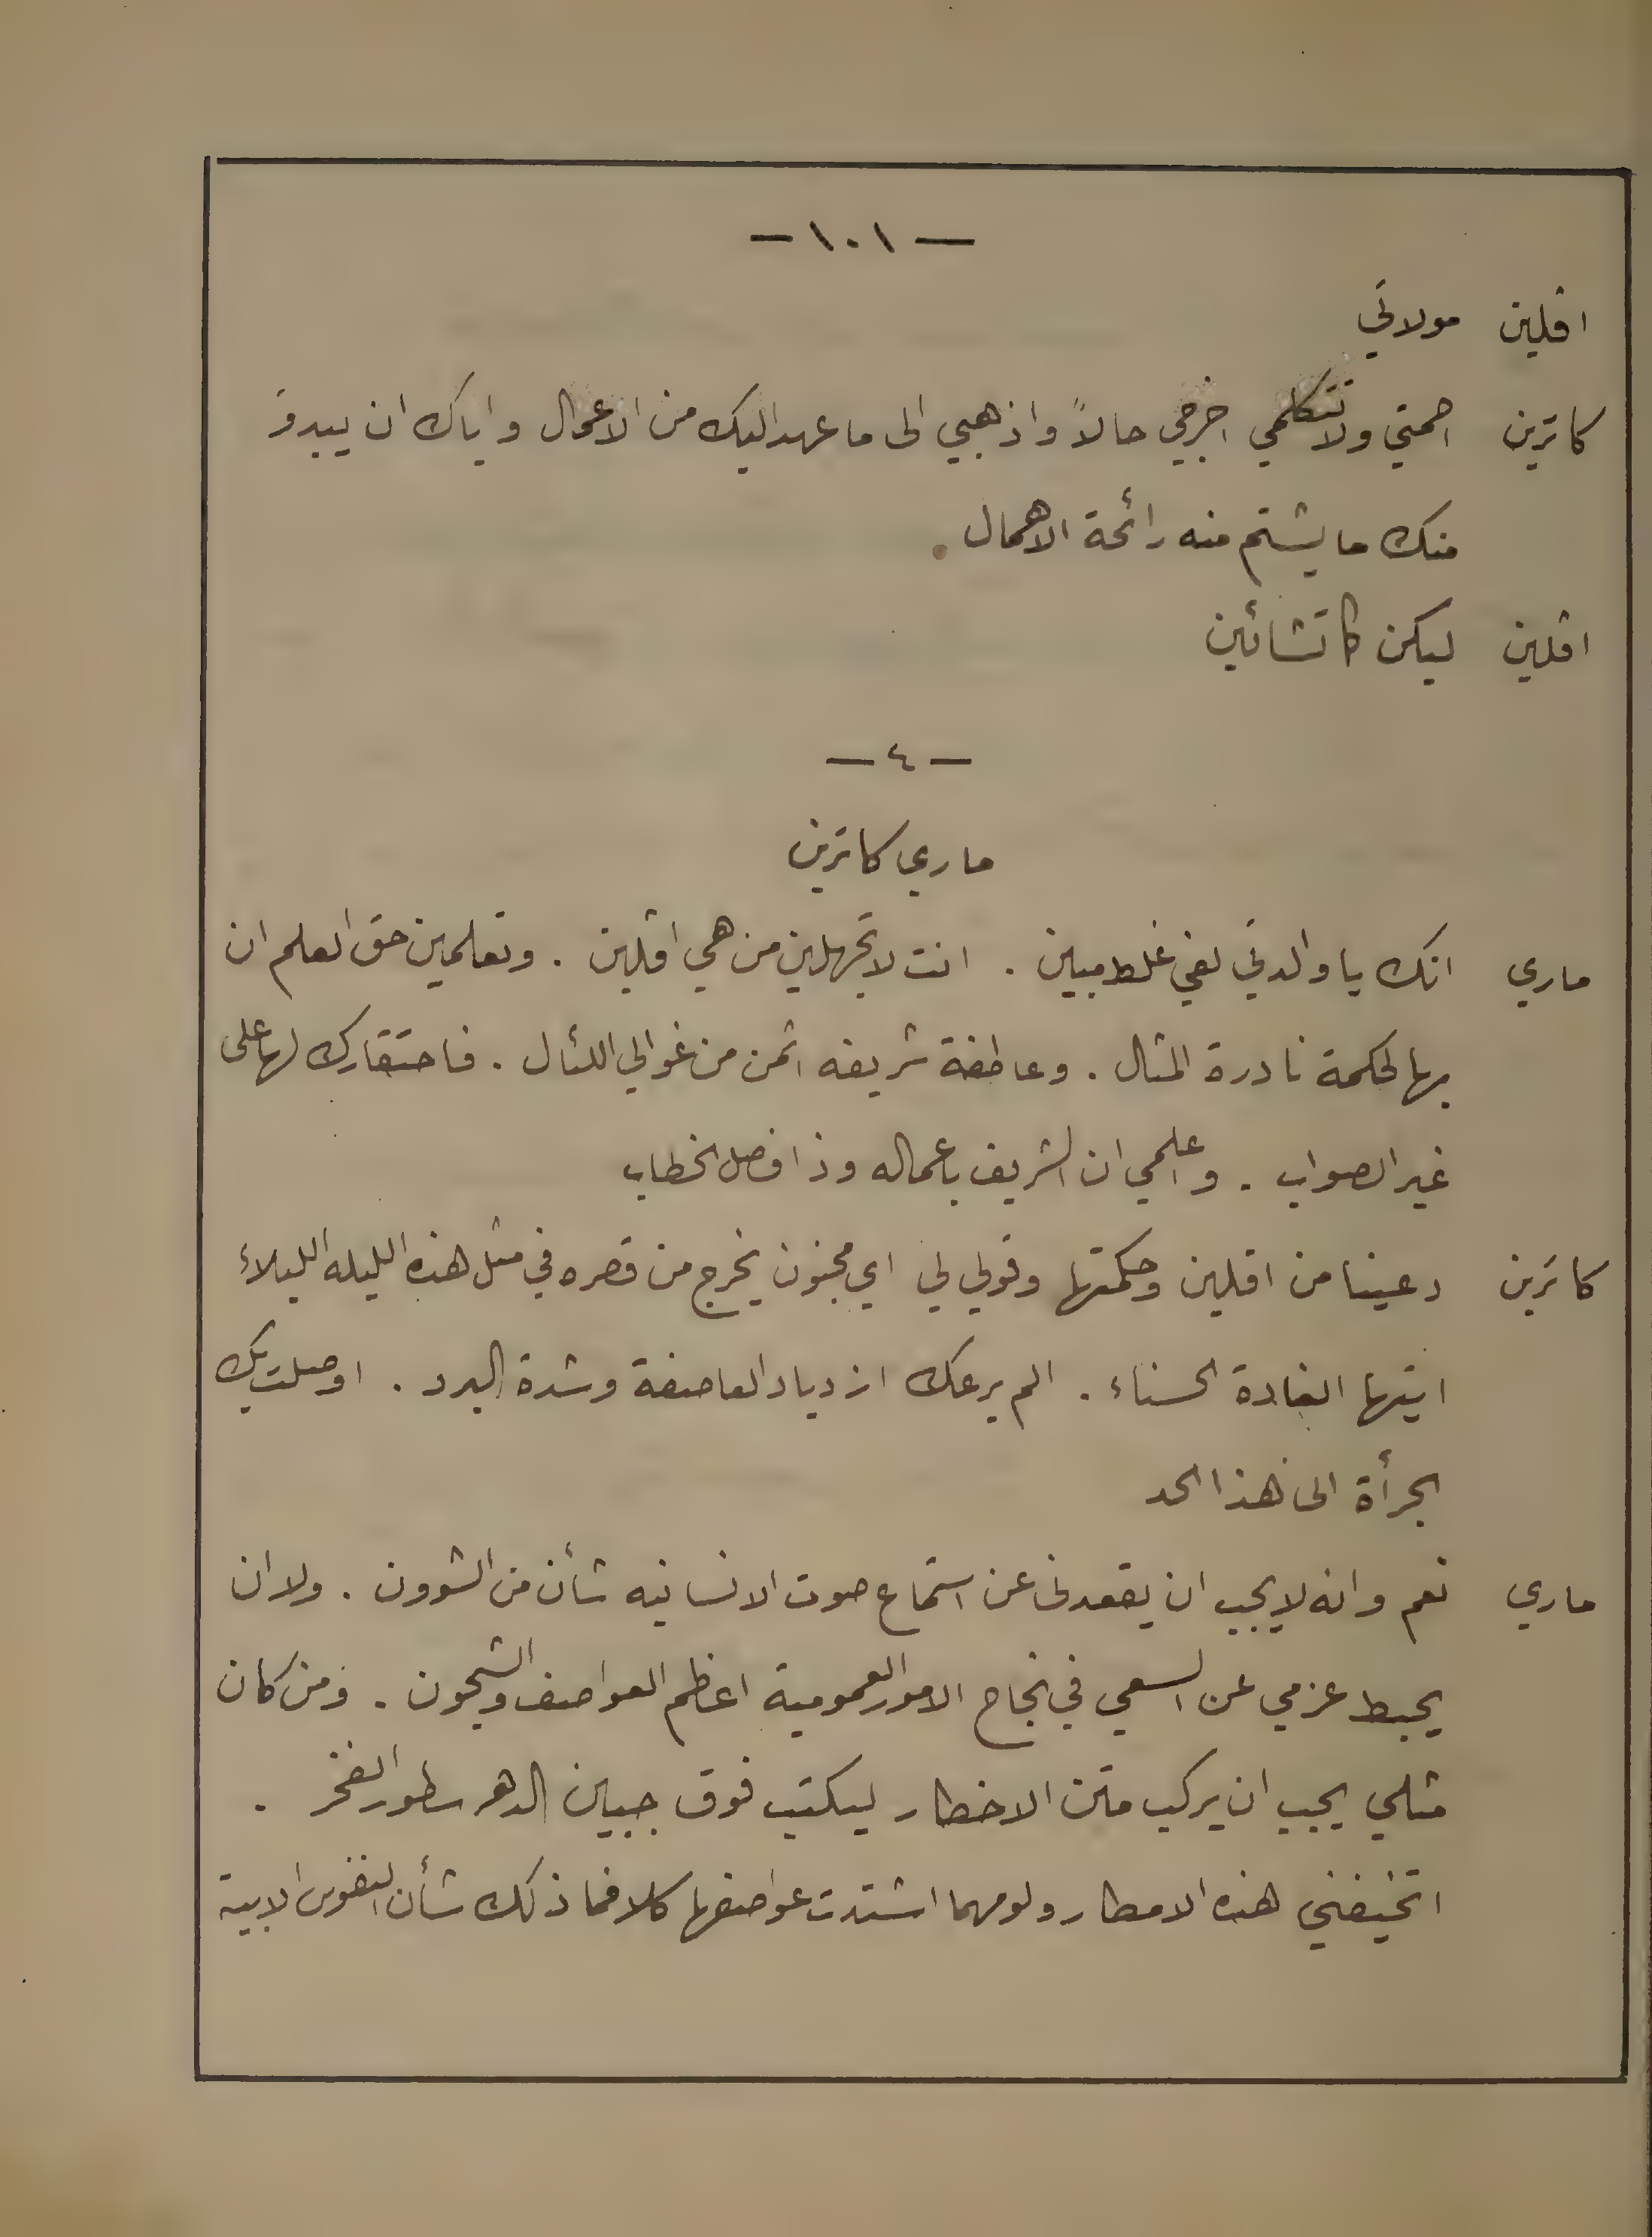 — ١٠١ —
افلين مولاتي
كاترين اصمتي ولا تتكلمي اخرجي حالاً واذهبي الى ما عهد اليك من الاعمال واياك ان يبدو
منك ما يشتم منه رائحة الاهمال .
افلين ليكن كما تشائين
— ٤ —
ماري كاترين
ماري انك يا والدتي لفي غلط مبين . انت لا تجهلين من هي افلين . وتعلمين حق العلم ان
بها لحكمة نادرة المثال . وعاطفة شريفه اثمن من غوالي اللئال . فاحتقارك لها على
غير الصواب . واعلمي ان الشريف باعماله وذا فصل الخطاب
كاترين دعينا من افلين وحكمتها وقولي لي اي مجنون يخرج من قصره في مثل هذه الليله الليلاء
ايتها الغادة الحسناء . الم يرعك ازدياد العاصفة وشدة البرد . اوصلت بك
الجرأة الى هذا الحد
ماري نعم وانه لا يجب ان يقعدني عن استماع صوت الانسانيه شأن من الشوون . ولا ان
يحبط عزمي عن السعي في نجاح الامور العمومية اعظم العواصف والشجون . ومن كان
مثلي يجب ان يركب متن الاخطار ليكتب فوق جبين الدهر سطور الفخر .
اتخيفني هذه الامطار ولو مهما اشتدت عواصفها كلا فما ذلك شأن النفوس الابية